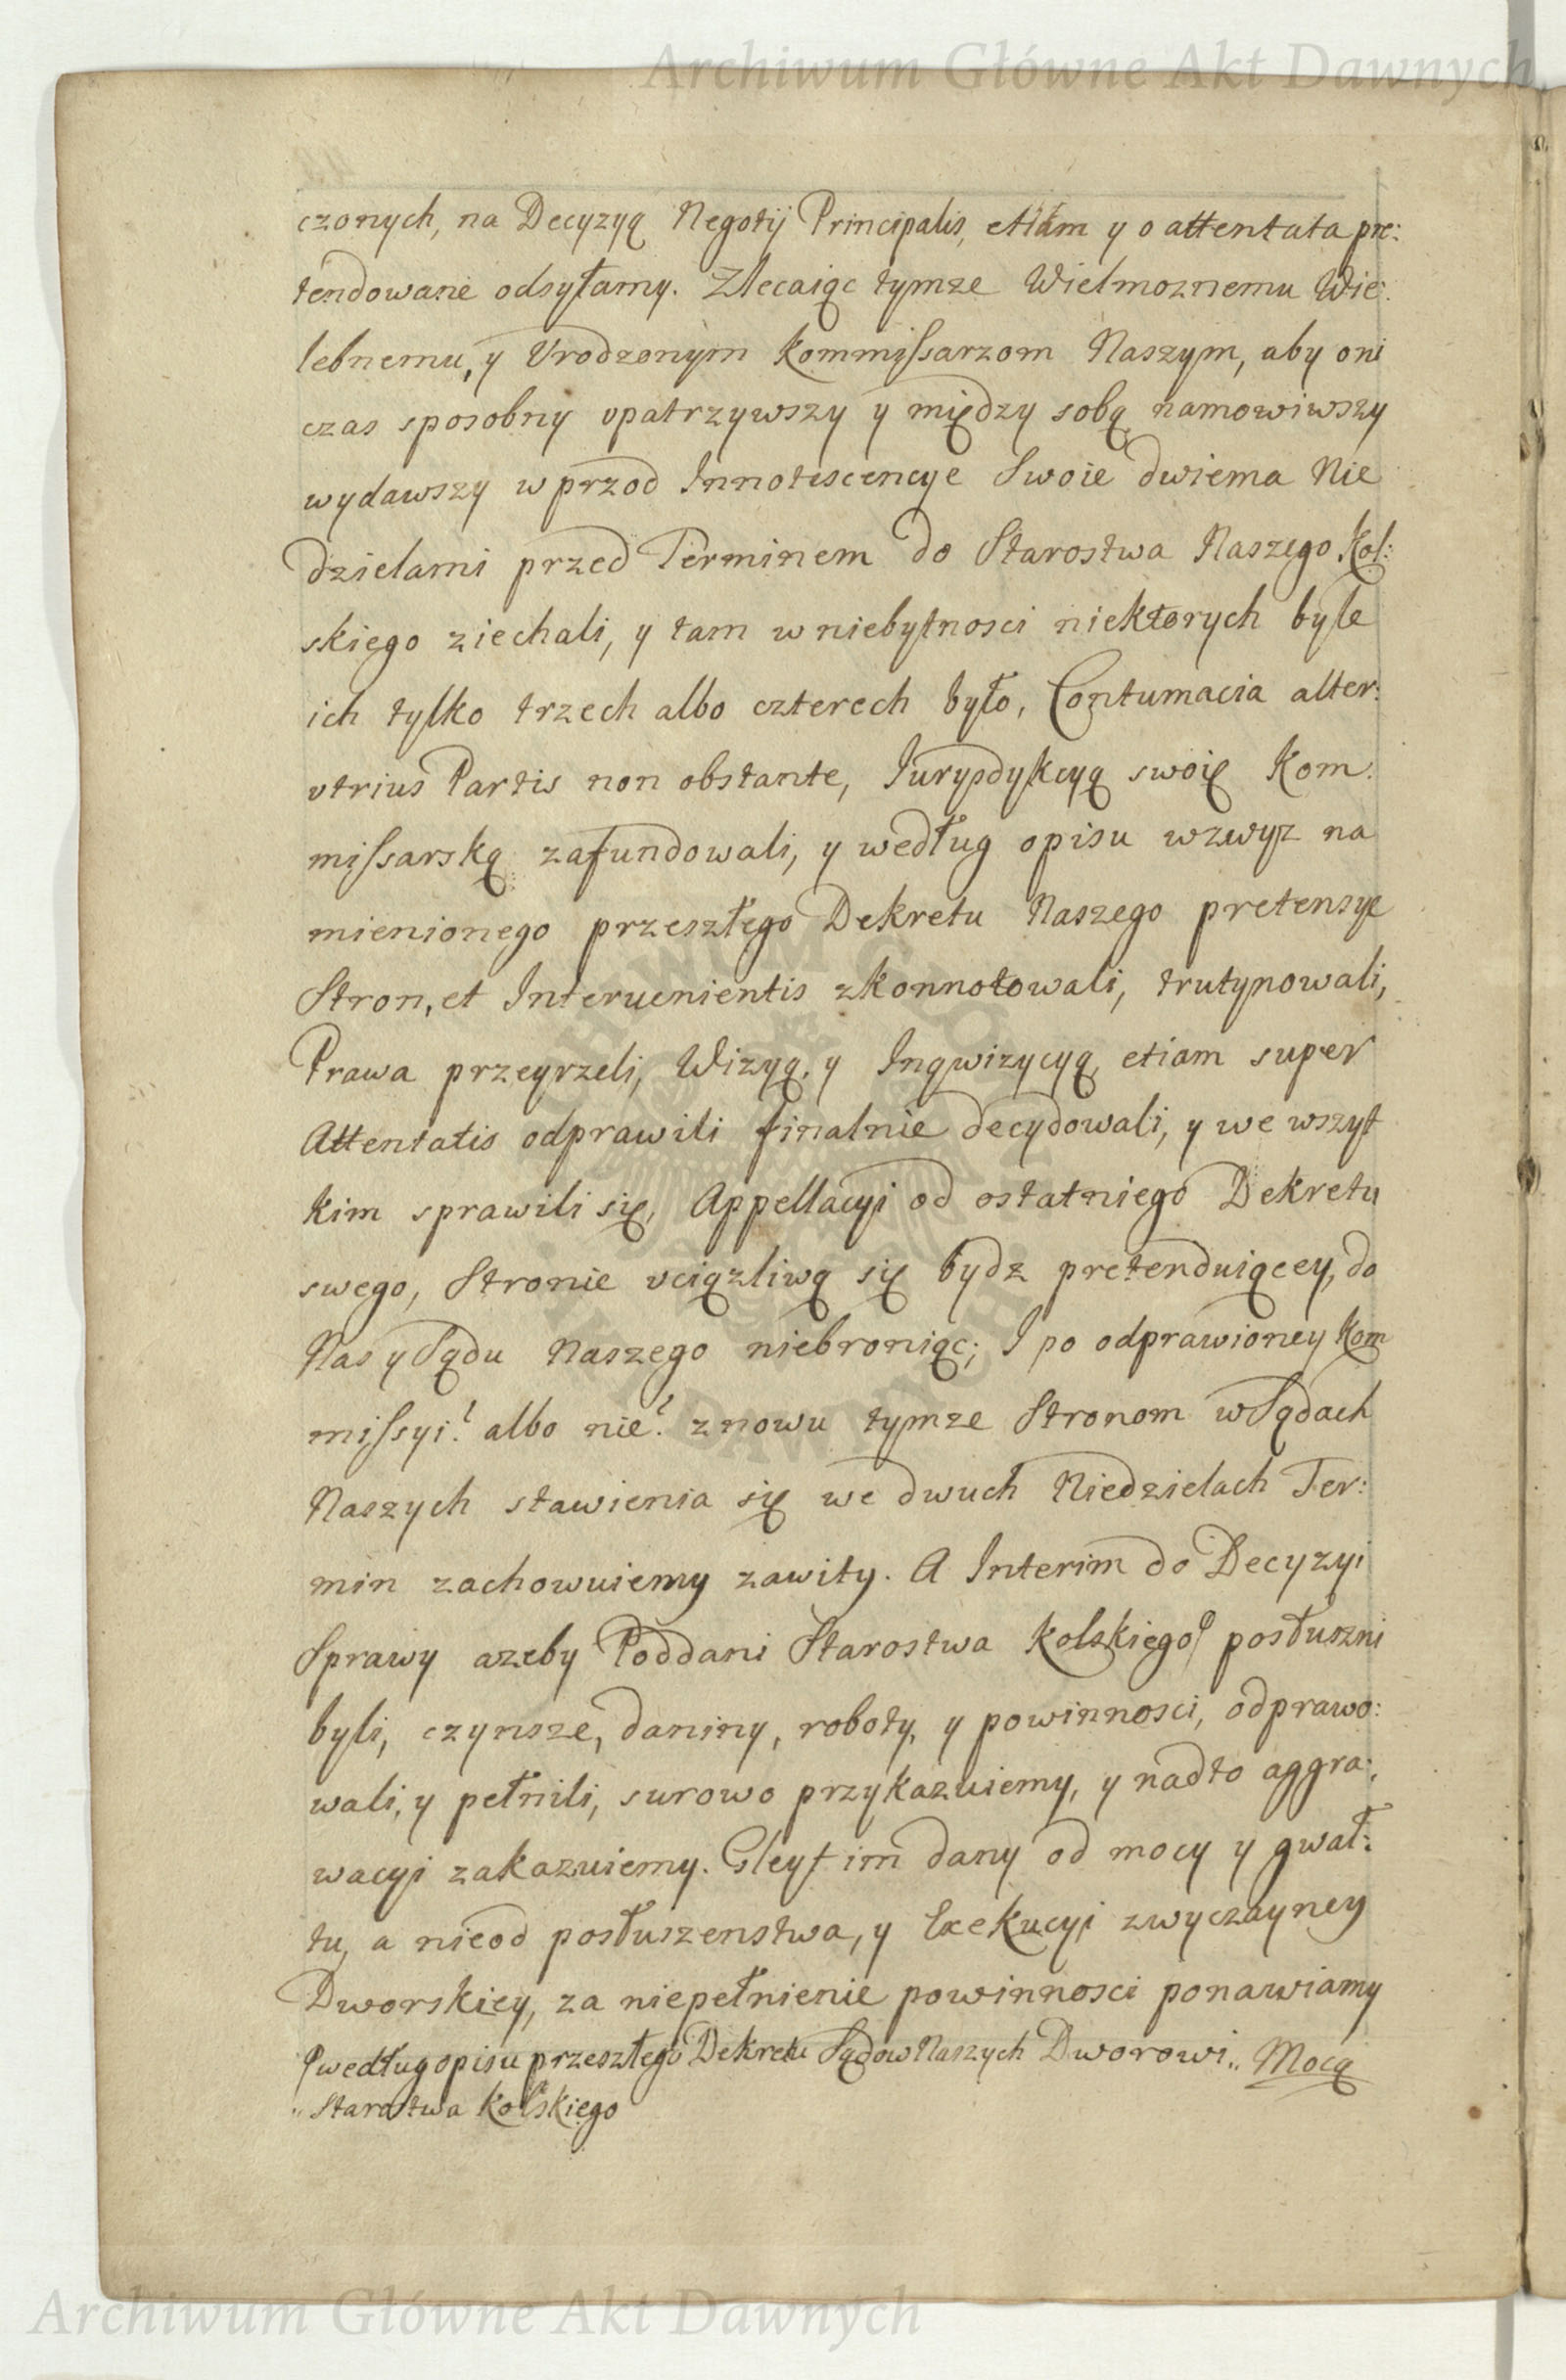 Archiwum Główne Akt Dawnych
czonych, na Decyzyą Negotij Principalis, etiam y o attentata pre:
tendowane odsyłamy. Zlecaiąc tymze Wielmoznemu Wie:
lebnemu, y Vrodzonym Kommissarzom Naszym, aby oni
czas sposobny upatrzywszy y między sobą namowiwszy
wydawszy wprzod Innotescencye Swoie dwiema Nie
dzielami przed Terminem do Starostwa Naszego Kol:
skiego ziechali, y tam w niebytnosci niektorych byle
ich tylko trzech albo czterech było, Contumacia alter:
utrius Partis non obstante, Jurysdykcyą swoię Kom:
missarską zafundowali, y według opisu wzwyz na
mienionego przeszłego Dekretu Naszego pretensye
Stron, et Interuenientis zkonnotowali, trutynowali,
Prawa przeyrzeli, Wizyą, y Inqwizycyą, etiam super
Attentatis odprawili finalnie decydowali, y we wszyt
kim sprawili się, Appellacyi od ostatniego Dekretu
swego, Stronie uciązliwą się bydz pretenduiącey, do
Nas y Sądu Naszego niebroniąc; I po odprawioney Kom
missyi? albo nie? znowu tymze Stronom w Sądach
Naszych stawienia się we dwuch Niedzielach Ter:
min zachowuiemy zawity. A Interim do Decyzyi
Sprawy azeby Poddani Starostwa Kolskiego posłuszni
byli, czynsze, daniny, roboty, y powinnosci, odprawo:
wali, y pełnili, surowo przykazuiemy, y nadto aggra:
wacyi zakazuiemy. Gleyt im dany od mocy y gwał:
tu, a nieod posłuszenstwa, y Exekucyi zwyczayney
Dworskiey, za niepełnienie powinnosci ponawiamy
według opisu przeszłego Dekretu Sądow Naszych Dworowi,, Mocą
,, Starostwa Kolskiego
Archiwum Główne Akt Dawnych